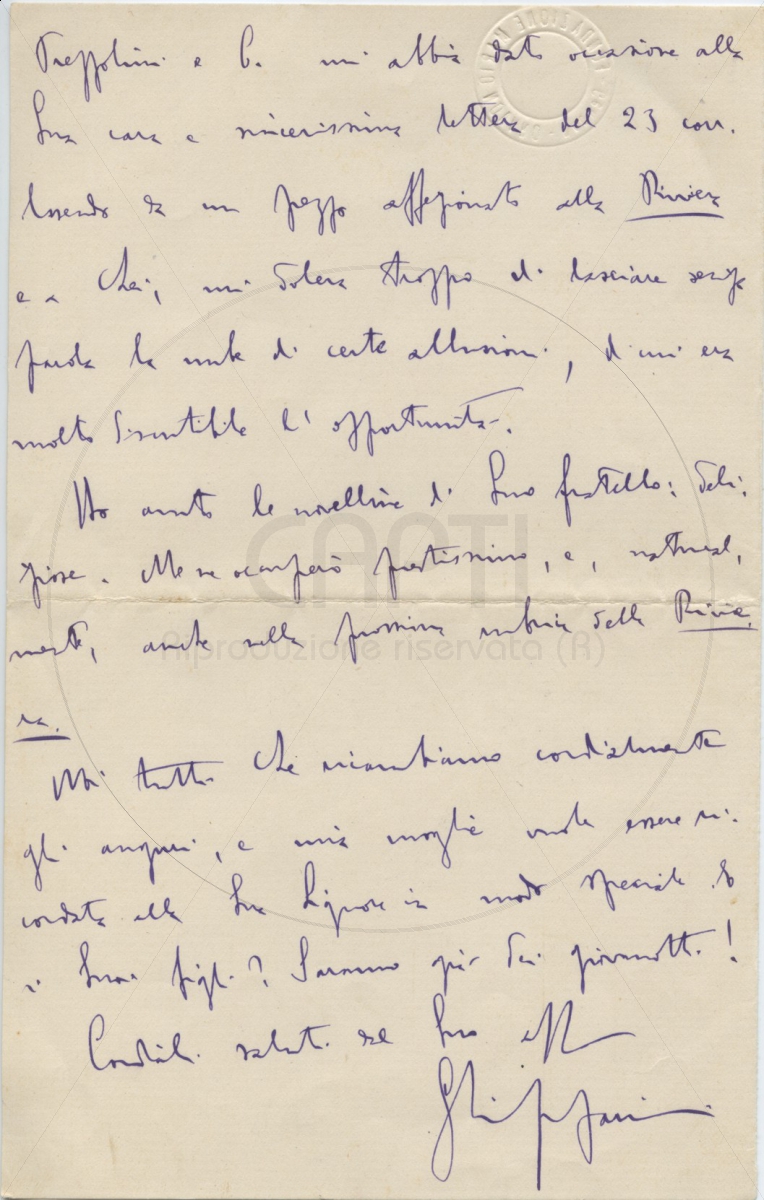 Trezzolini e C. mi abbia dato occasione alla
Sua cara e sincerissima lettera del 23 corr.
Essendo da un pezzo affezionato alla Riviera
e a Lei, mi doleva troppo di lasciare senza
parola la nube di certe allusioni, di cui era
molto discutibile l'opportunità.
Ho avuto le novelline di Suo fratello: deli-
ziose. Me ne occuperò prestissimo, e, natural,
mente, anche nella prossima rubrica della Rivie,
ra.
Noi tutti Le ricambiamo cordialmente
gli auguri, e mia moglie vuole essere ri-
cordata alla Sua Signora in modo speciale. E
i Suoi figli? Saranno già dei giovanotti!
Cordiali saluti dal Suo aff
CANTI
Riproduzione riservata (R)